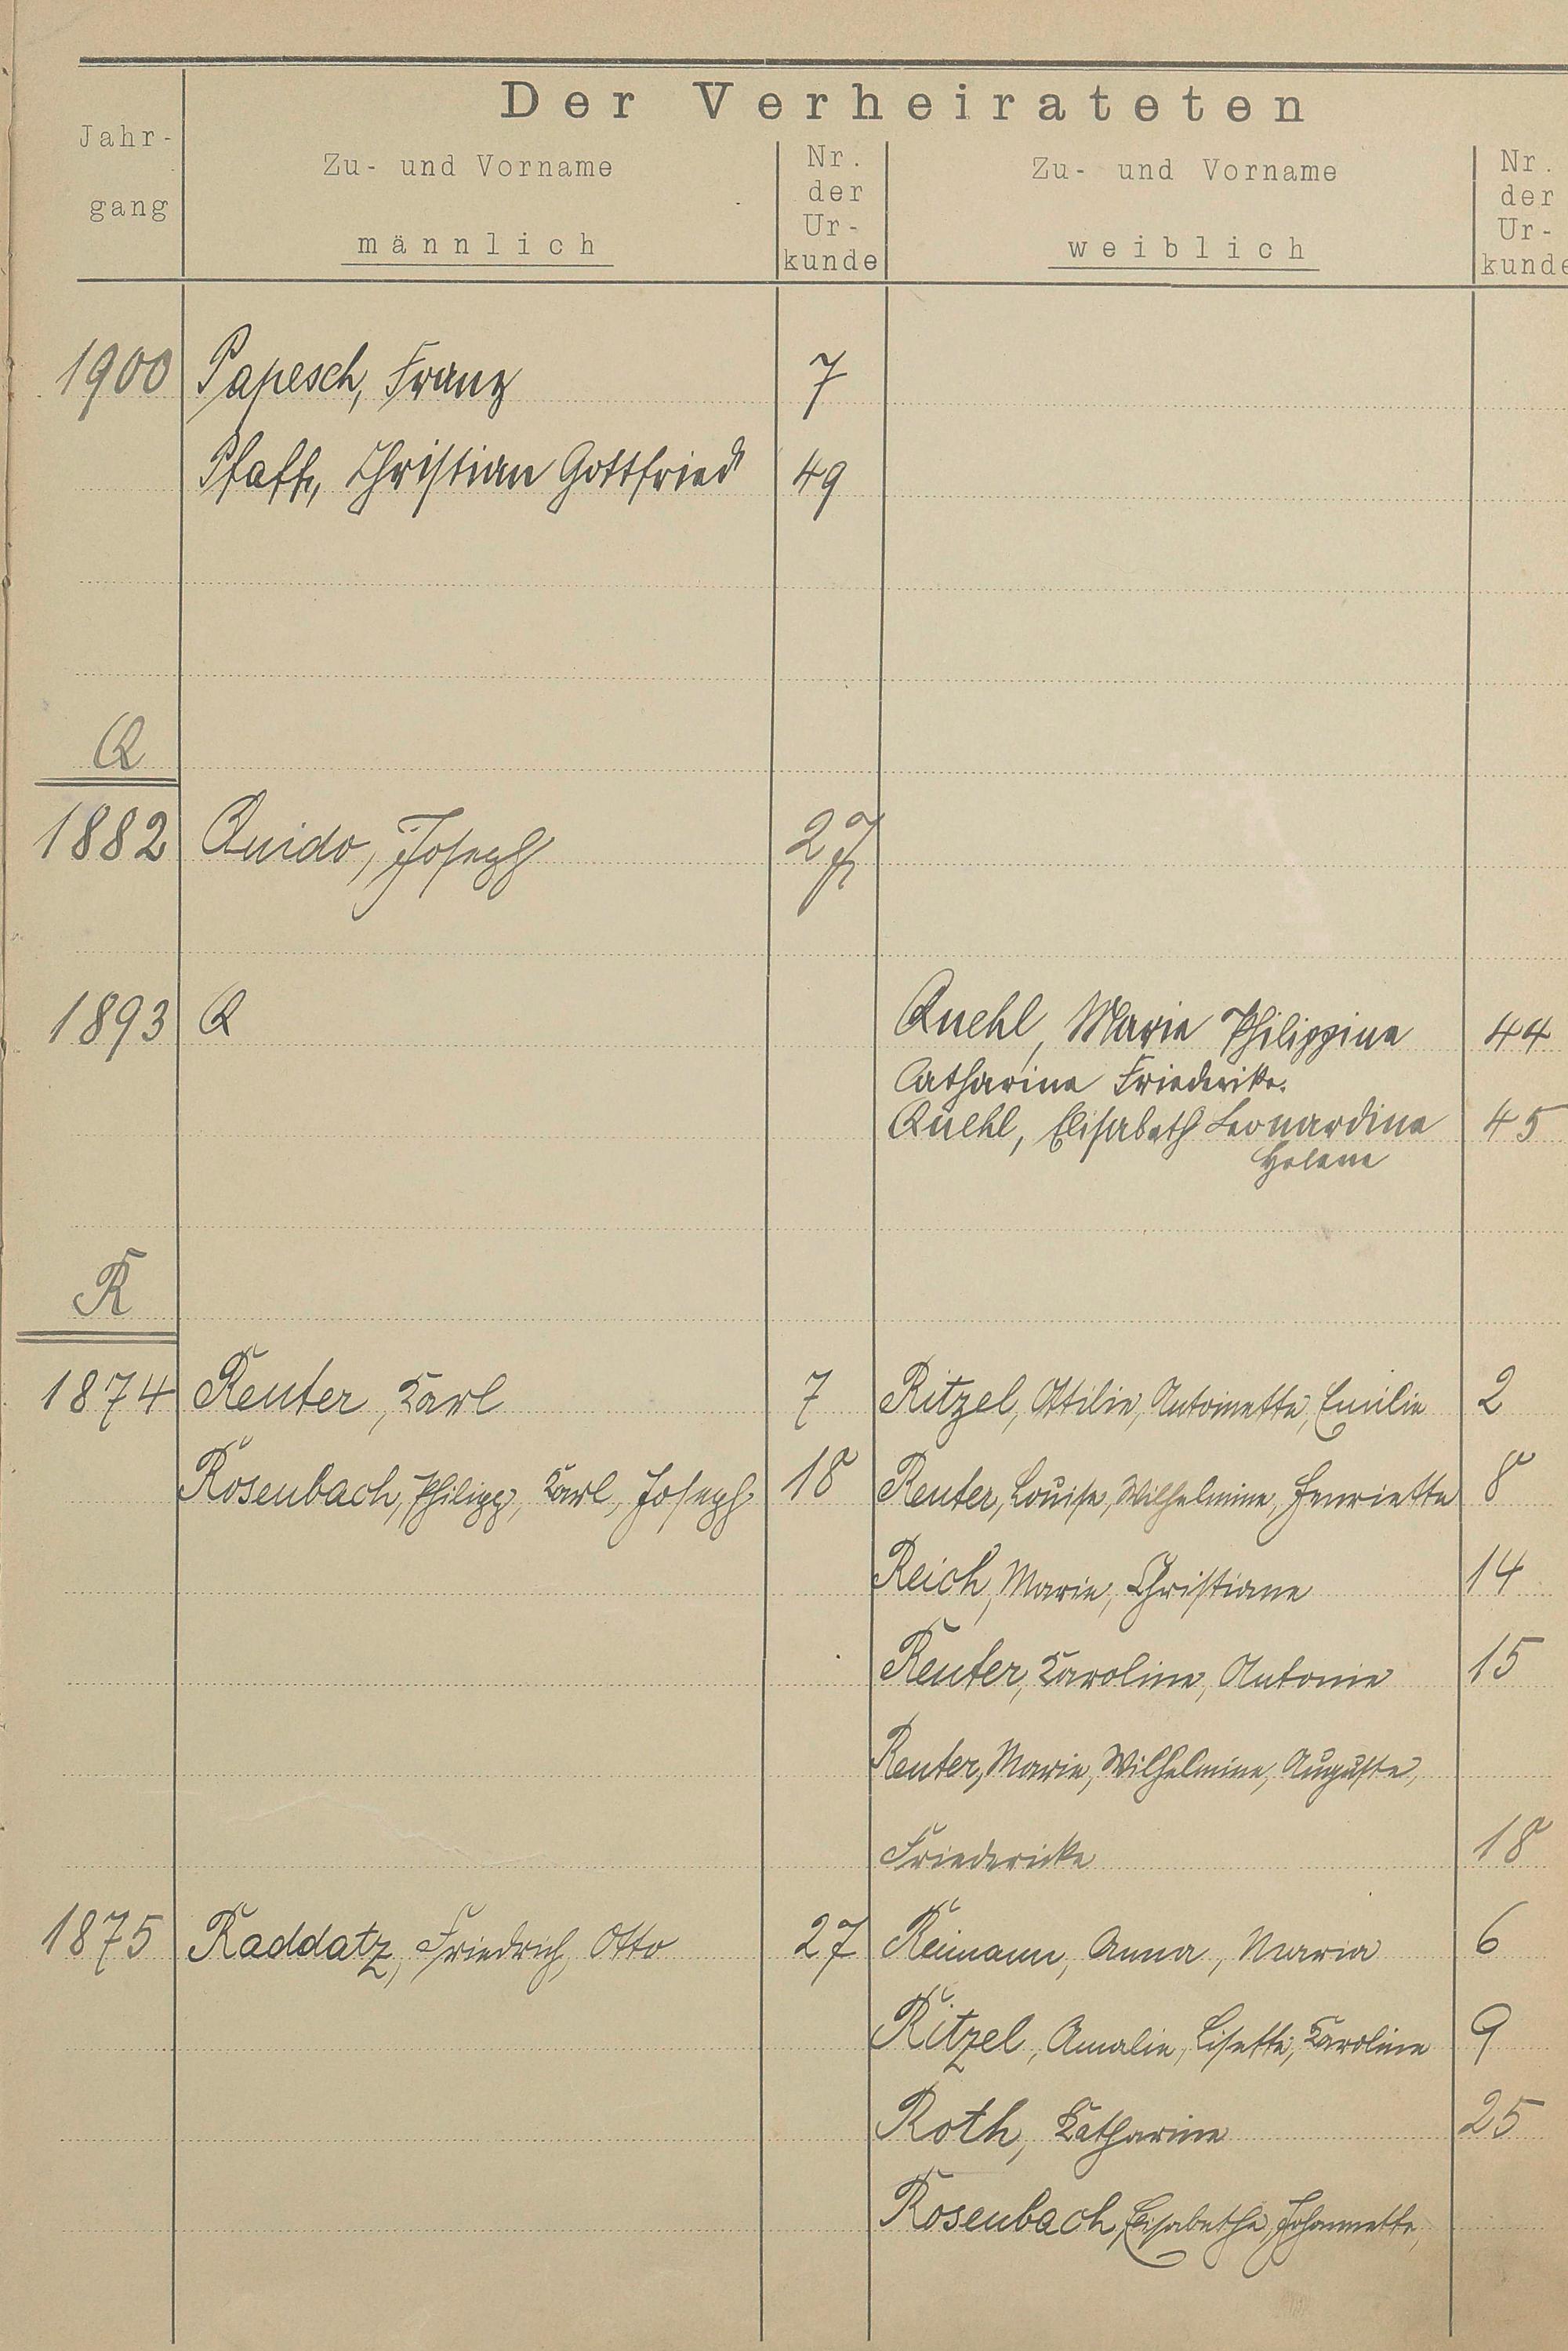 Der Verheirateten
Jahr-
gang
Zu- und Vorname
männlich
Nr.
der
Ur-
kunde
Zu- und Vorname
weiblich
Nr.
der
Ur-
kunde
1900 Papesch, Franz 7
Pfaff, Christian Gottfried 49
Q
1882 Quido, Joseph 27
1893 Q Quehl, Marie Philippine 44
Catharina Friederike.
Quehl, Elisabeth Leonardine 45
Helene
R
1874 Reuter, Karl 7 Ritzel, Ottilie, Antoinette, Emilie 2
Rosenbach, Philipp, Karl, Joseph 18 Reuter, Louise, Wilhelmine, Henriette 8
Reich, Marie, Christiane 14
Reuter, Karoline, Antonie 15
Reuter, Marie, Wilhelmine, Auguste,
Friedericke 18
1875 Raddatz, Friedrich, Otto 27 Reimann, Anna, Maria 6
Ritzel, Amalie, Lisette, Karoline 9
Roth, Katharine 25
Rosenbach, Elisabethe, Johannette,